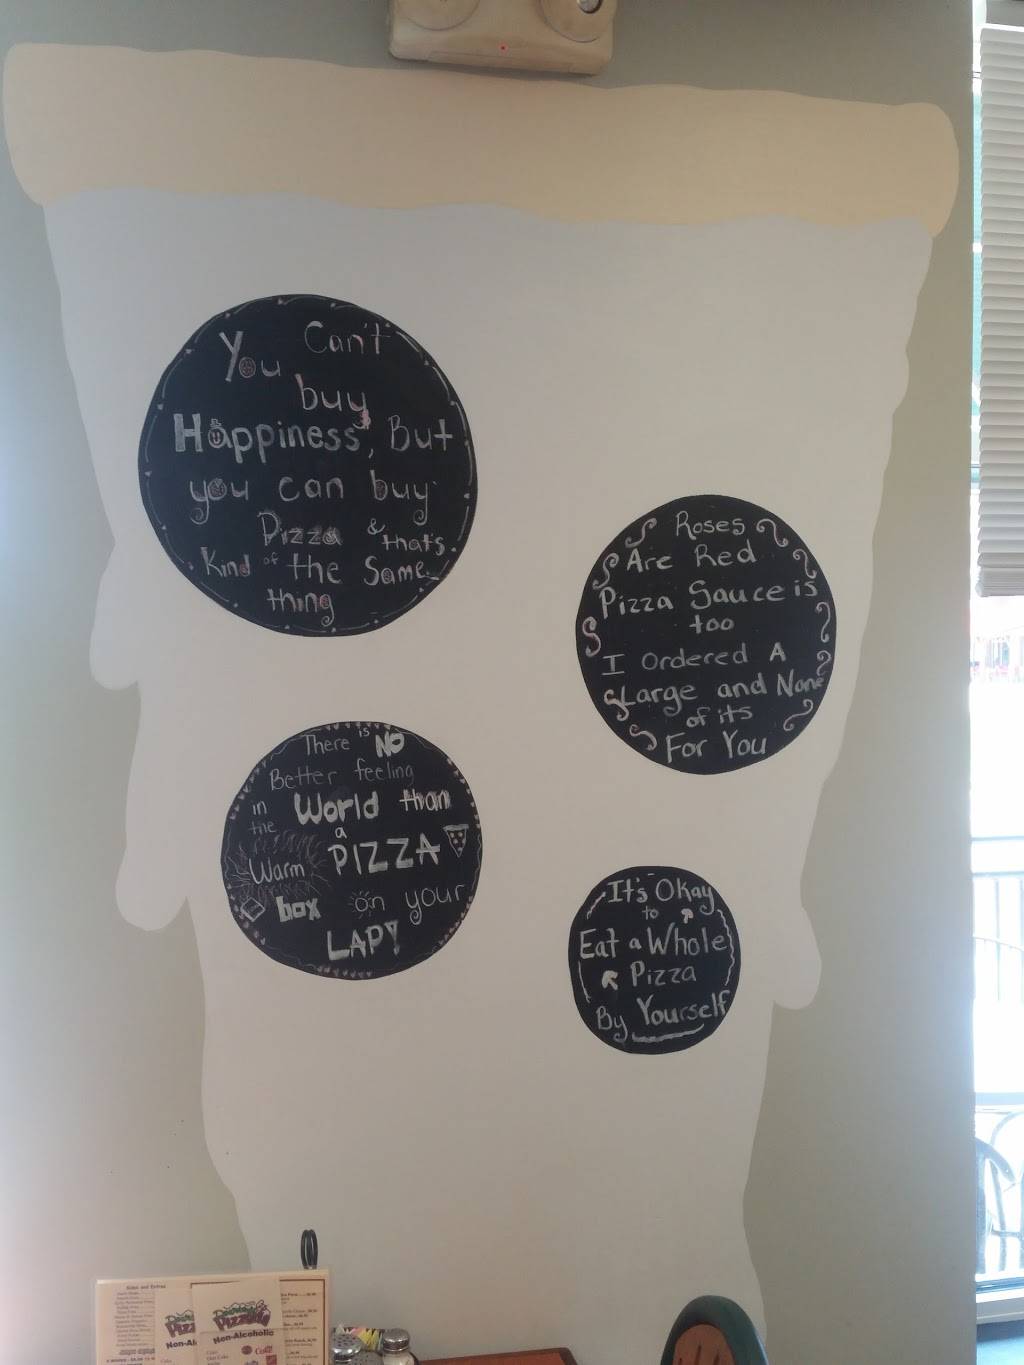 You Can't
buy
Happiness, But
you can buy
Pizza & that's
Kind of the Same
thing
Roses
Are Red
Pizza Sauce is
too
I Ordered A
Large and None
of its
For You
There is NO
Better feeling
in the World than
a
Warm PIZZA
box on your
LAP!
It's Okay
to
Eat a Whole
Pizza
By Yourself
Sides and Extras
Non-Alcoholic
Coke